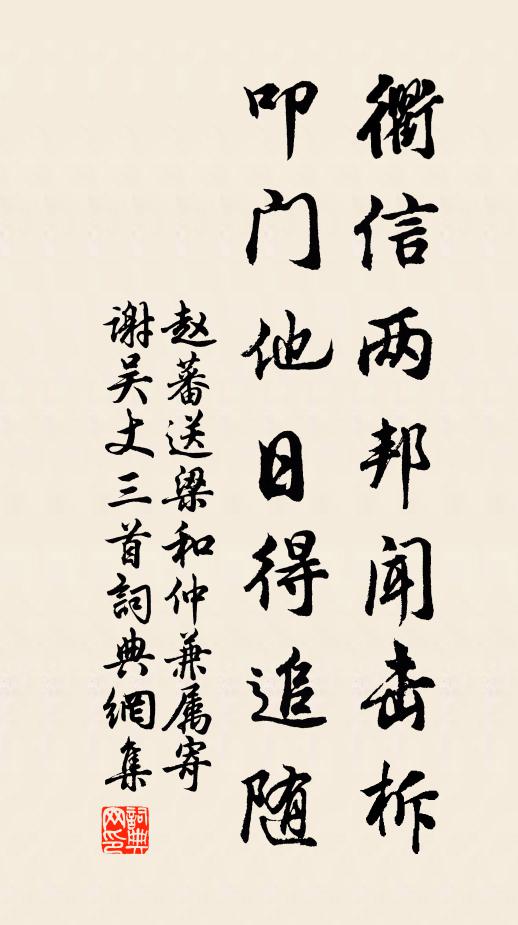 衢信两邦闻击柝
叩门他日得追随
赵蕃送梁和仲兼属寄
谢吴丈三首詞典網集
詞典网印